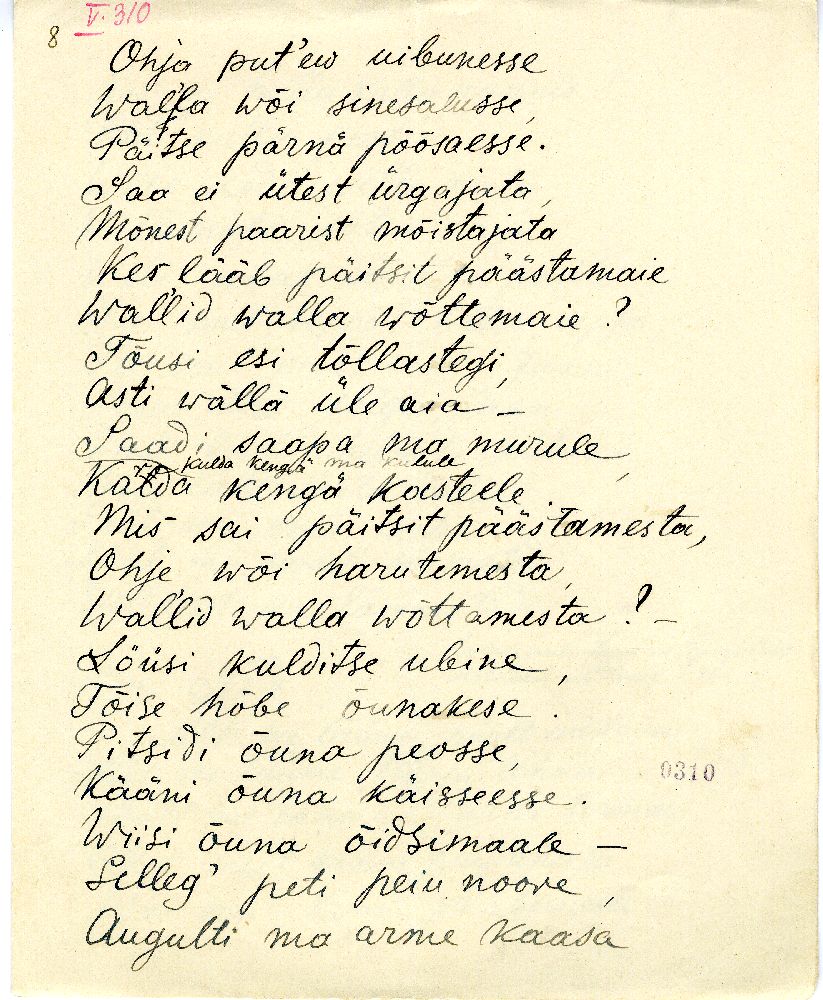 V. 310
8
Ohja put'ew uibunesse
Wal'la wõi sinesalusse,
Päitse pärnä põõsaesse.
Saa ei ütest ürgajata,
Mõnest paarist mõistajata
Kes lääb päitsit päästamaie
Wal'lid walla wõttemaie?
Tõusi esi tõllastegi,
Asti wällä üle aia –
Saadi saapa ma murule,
kulda kengä ma kulule
kengä kasteele.
Mis sai päitsit päästamesta,
Ohje wõi harutemesta,
Wal'lid walla wõttamesta? –
Löüsi kulditse ubine,
Tõise hõbe õunakese.
Pitsidi õuna peosse,
0310
Kääni õuna käisseesse.
Wiisi õuna õidsimaale –
Selleg' peti peiu noore,
Augulti ma arme kaasa